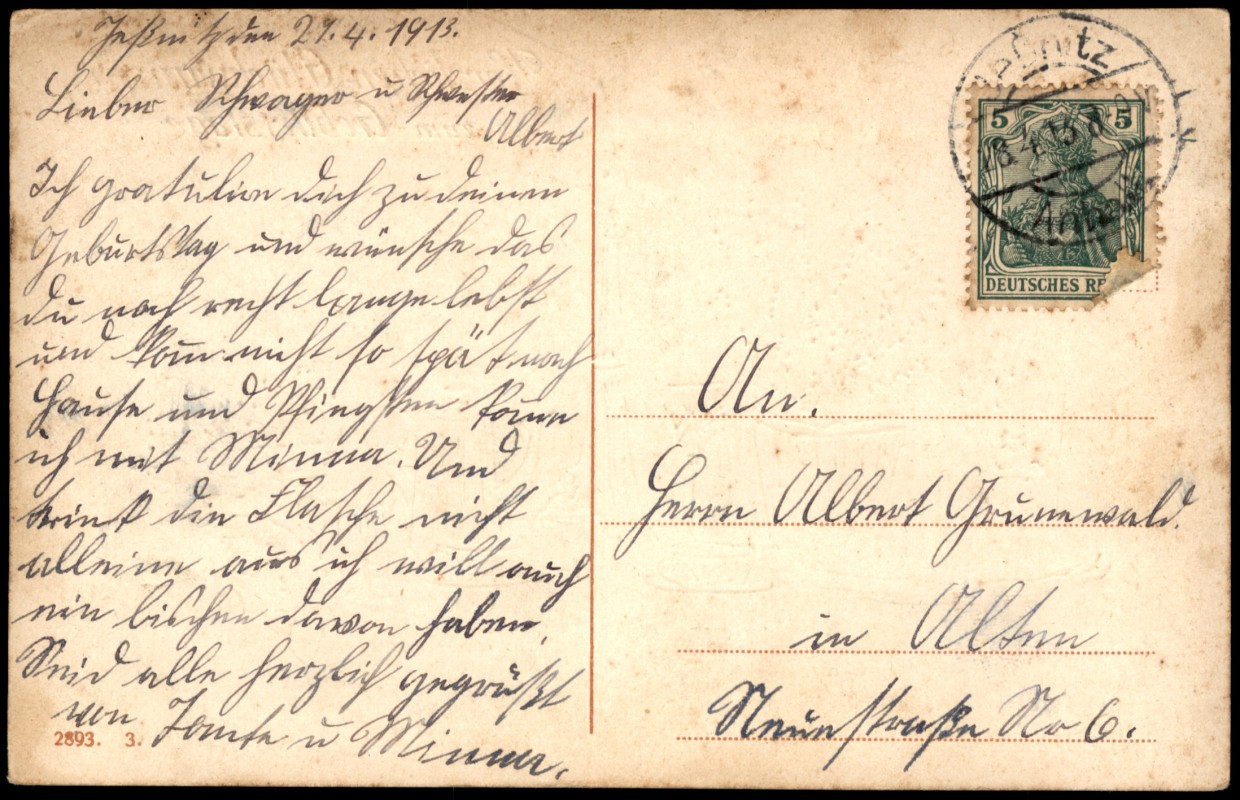 Jeßnitz den 27.4.1913.
Lieber Schwager u Schwester
Albert
Ich gratulire dich zu deinen
Geburtstag und wünsche das
du noch recht lange lebst
und kom nicht so spät nach
Hause und Pfingsten komme
ich mit Minna. Und
trink die Flasche nicht
alleine aus ich will auch
ein bischen davon haben,
Seid alle herzlich gegrüßt
von Tante u Minna.
2893. 3.
Jeßnitz
5 5
DEUTSCHES RE
(Anhalt)
An.
Herrn Albert Grunewald.
in Alten
Neuenstraße No 6.